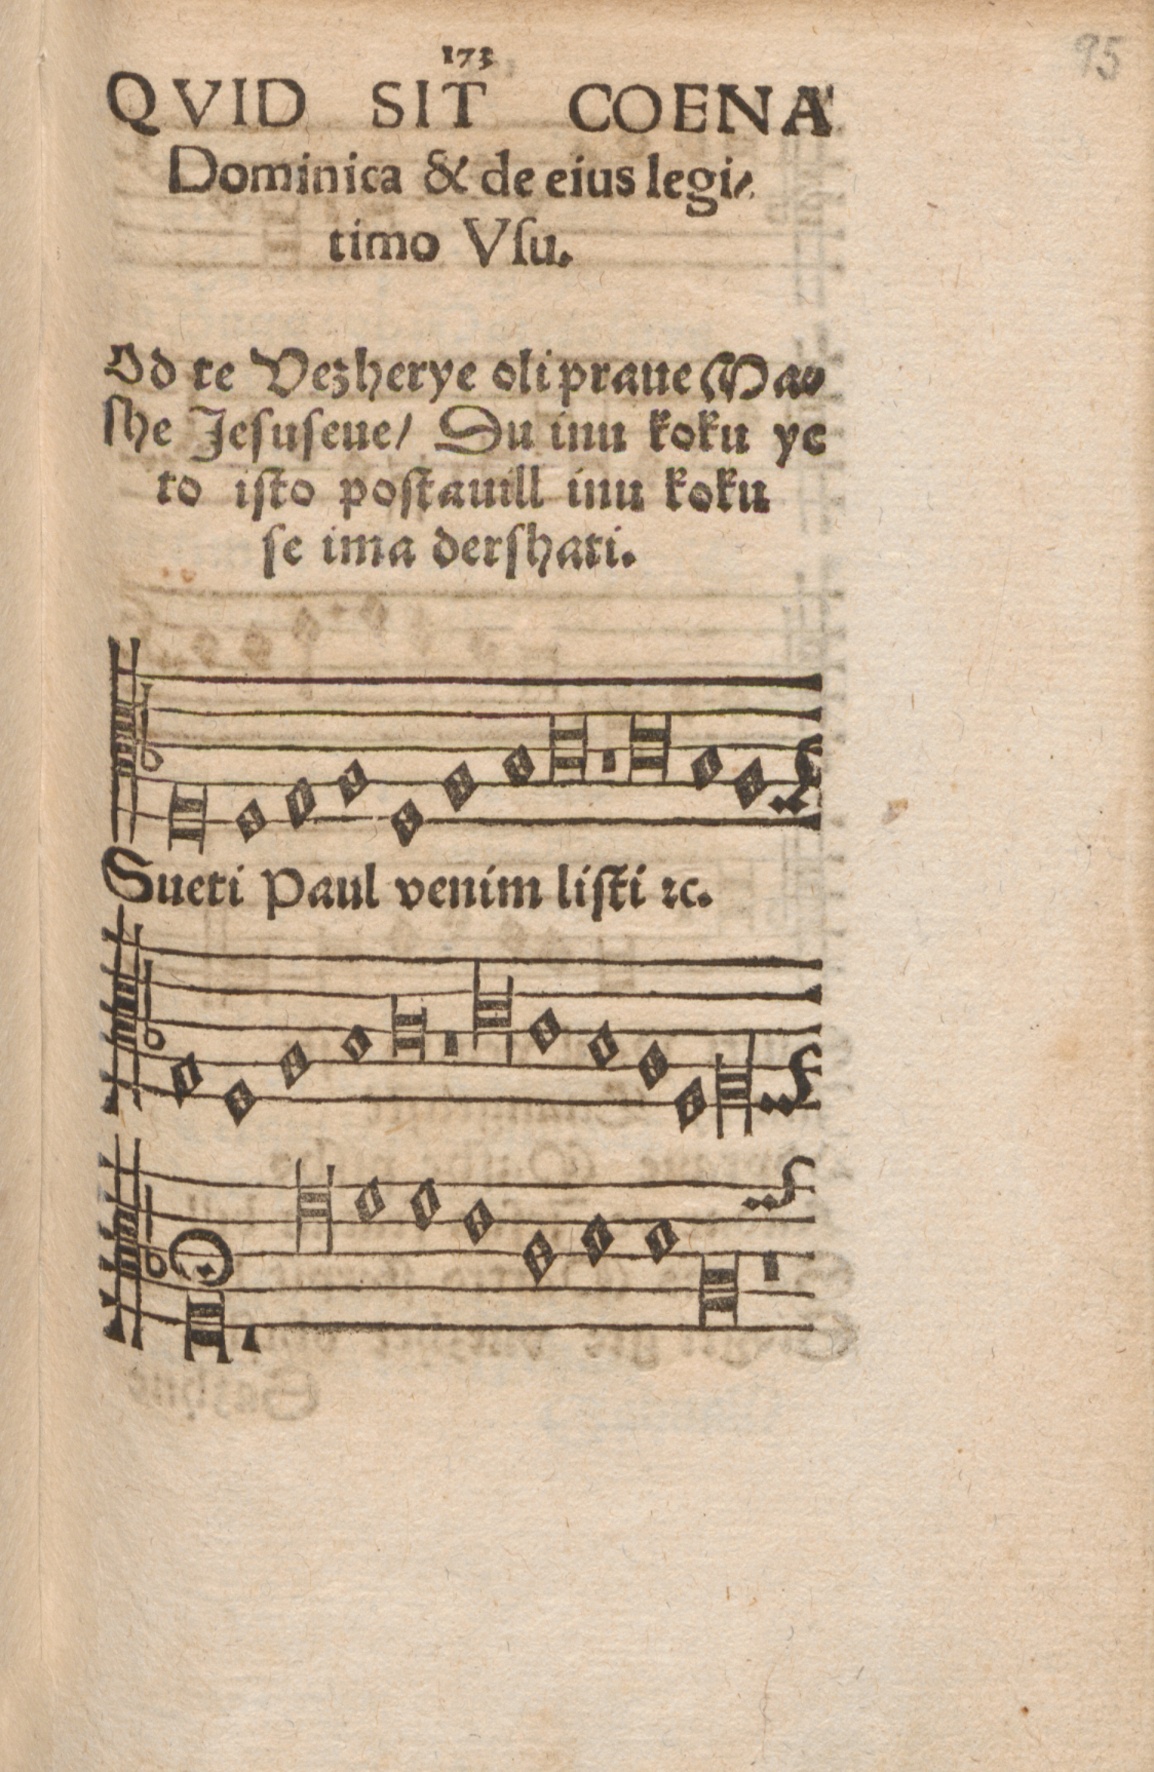 173
95
QVID SIT COENA
Dominica & de eius legi⸗
timo Vſu.
Od te Vezherye oli praue Ma⸗
ſhe Jeſuſeue/ Du inu koku ye
to iſto poſtauill inu koku
ſe ima derſhati.
Sueti Paul venim liſti ꝛc.